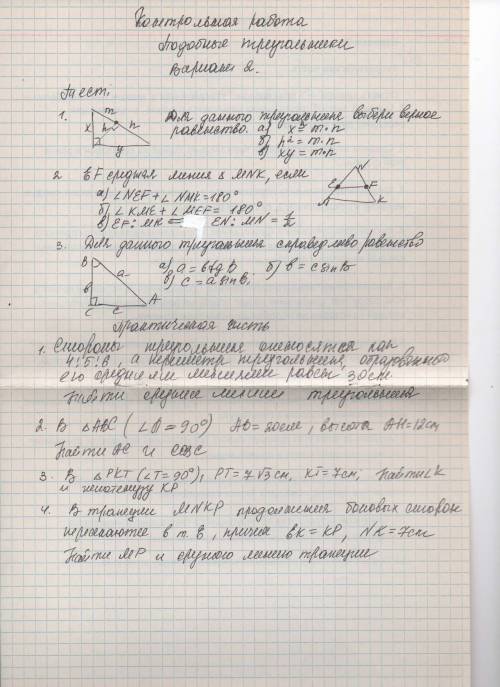 Контрольная работа
Подобные треугольники
Вариант 2.
Тест.
1. Для данного треугольника выбери верное
равенство. а) x² = m·n
б) h² = m·n
в) xy = m·n
m
x h n
y
2. EF средняя линия △ MNK, если
а) ∠NEF + ∠NMK = 180°
б) ∠KME + ∠MEF = 180°
в) EF : MK = EN : MN = 1/2
N
E F
K
3. Для данного треугольника справедливо равенство
а) a = b tg B б) b = c sin B
в) c = a sin B.
B
a
b
C c A
Практическая часть
1. Стороны треугольника относятся как
4:5:6, а периметр треугольника, образованного
его средними линиями равен 30см.
Найти средние линии треугольника
2. В △ABC (∠A = 90°) AB = 20см, высота AH = 12см
Найти AC и cosC
3. В △PKT (∠T = 90°), PT = 7√3 см, KT = 7см, Найти ∠K
и гипотенузу KP
4. В трапеции MNKP продолжения боковых сторон
пересекаются в т. B, причем BK = KP, NK = 7см
Найти MP и среднюю линию трапеции